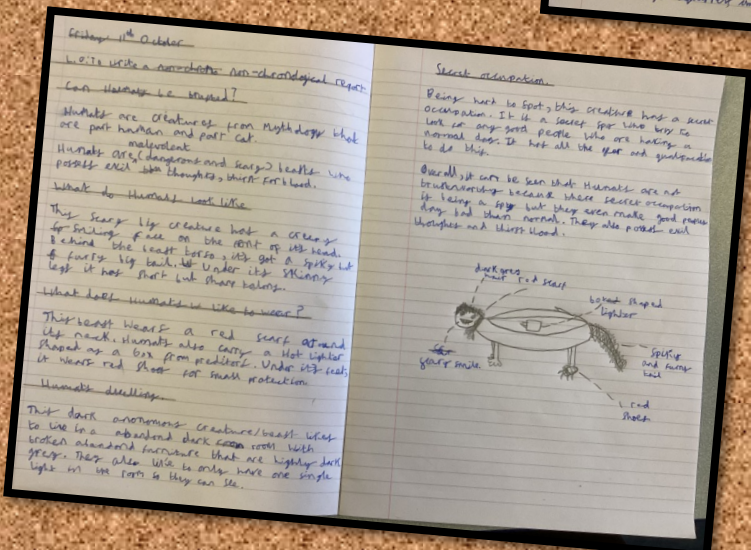 Friday 11th October
L.O: To write a non-chronological report
Can Humats be trusted?
Humats are creatures from Mythology that
are part human and part cat.
malevolent
Humats are (dangerous and scary) beasts who
posses evil thoughts, thirst for blood.
What do Humats look like
This scary big creature has a creepy
smiling face on the front of its head.
Behind the beast torso, it's got a spiky but
furry big tail. Under its skinny
legs it has short but sharp
What does Humats like to wear?
This beast wears a red scarf around
its neck. Humats also carry a Hot lighter
shaped as a box from preditors. Under its feet,
it wears red shoes for small protection
Humats dwelling.
This dark anonomous creature/beast likes
to live in a abandond dark room with
broken abandond furniture that are highly dark
grey. They also like to only have one single
light on the roof so they can see.
Secret occupation.
Being hard to spot, this creature has a secret
occupation. It is a secret spy who trys to
look for any good people who are having a
normal day. It has all the and
to do this.
Overall, it can be seen that Humats are not
because there secret occupation
is being a spy but they even make good peoples
day bad than normal. They also posses evil
thoughts and thirst blood.
dark grey
hair
red scarf
boxed shaped
lighter
scary smile
spiky
and furry
tail
red
shoes